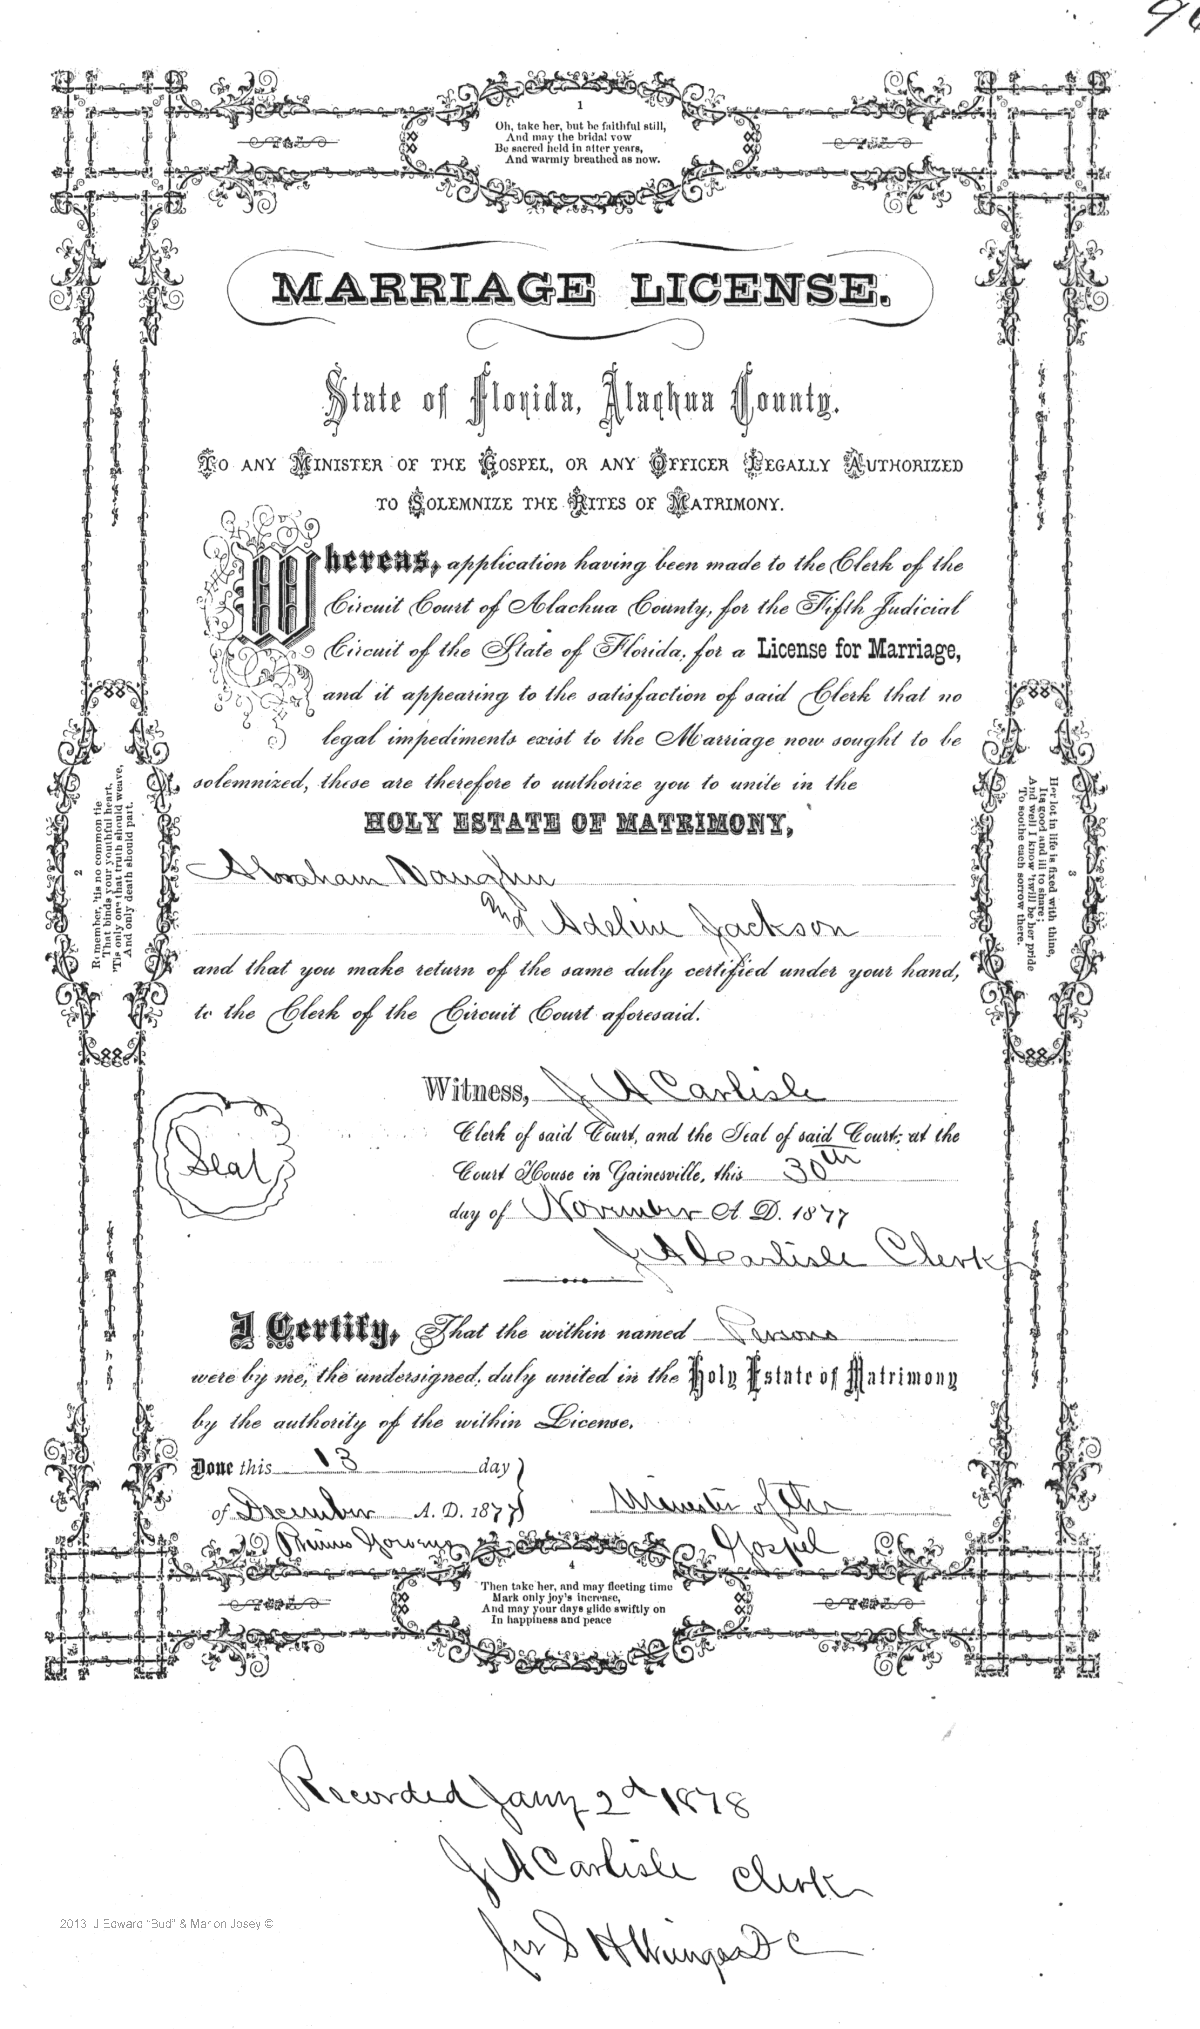 1
Oh, take her, but be faithful still,
And may the bridal vow
Be sacred held in after years,
And warmly breathed as now.
MARRIAGE LICENSE.
State of Florida, Alachua County.
TO ANY MINISTER OF THE GOSPEL, OR ANY OFFICER LEGALLY AUTHORIZED
TO SOLEMNIZE THE RITES OF MATRIMONY.
Whereas, application having been made to the Clerk of the
Circuit Court of Alachua County, for the Fifth Judicial
Circuit of the State of Florida, for a License for Marriage,
and it appearing to the satisfaction of said Clerk that no
legal impediments exist to the Marriage now sought to be
solemnized, these are therefore to authorize you to unite in the
HOLY ESTATE OF MATRIMONY,
Abraham Vaughn
and Adeline Jackson
and that you make return of the same duly certified under your hand,
to the Clerk of the Circuit Court aforesaid.
2
Remember, 'tis no common tie
That binds your youthful heart,
'Tis only one that truth should weave,
And only death should part.
3
Her lot in life is fixed with thine,
Its good and ill to share;
And well I know 'twill be her pride
To soothe each sorrow there.
Witness, J A Carlisle
Clerk of said Court, and the Seal of said Court, at the
Court House in Gainesville, this 30th
day of November A. D. 1877
J A Carlisle Clerk
Seal
I Certify, That the within named Persons
were by me, the undersigned, duly united in the Holy Estate of Matrimony
by the authority of the within License.
Done this 13 day
of December A. D. 1877
Minister of the
Gospel
Primus
4
Then take her, and may fleeting time
Mark only joy's increase,
And may your days glide swiftly on
In happiness and peace
Recorded Jany 2d 1878
J A Carlisle Clerk
S H D C
2013 J Edward "Bud" & Marion Josey ©